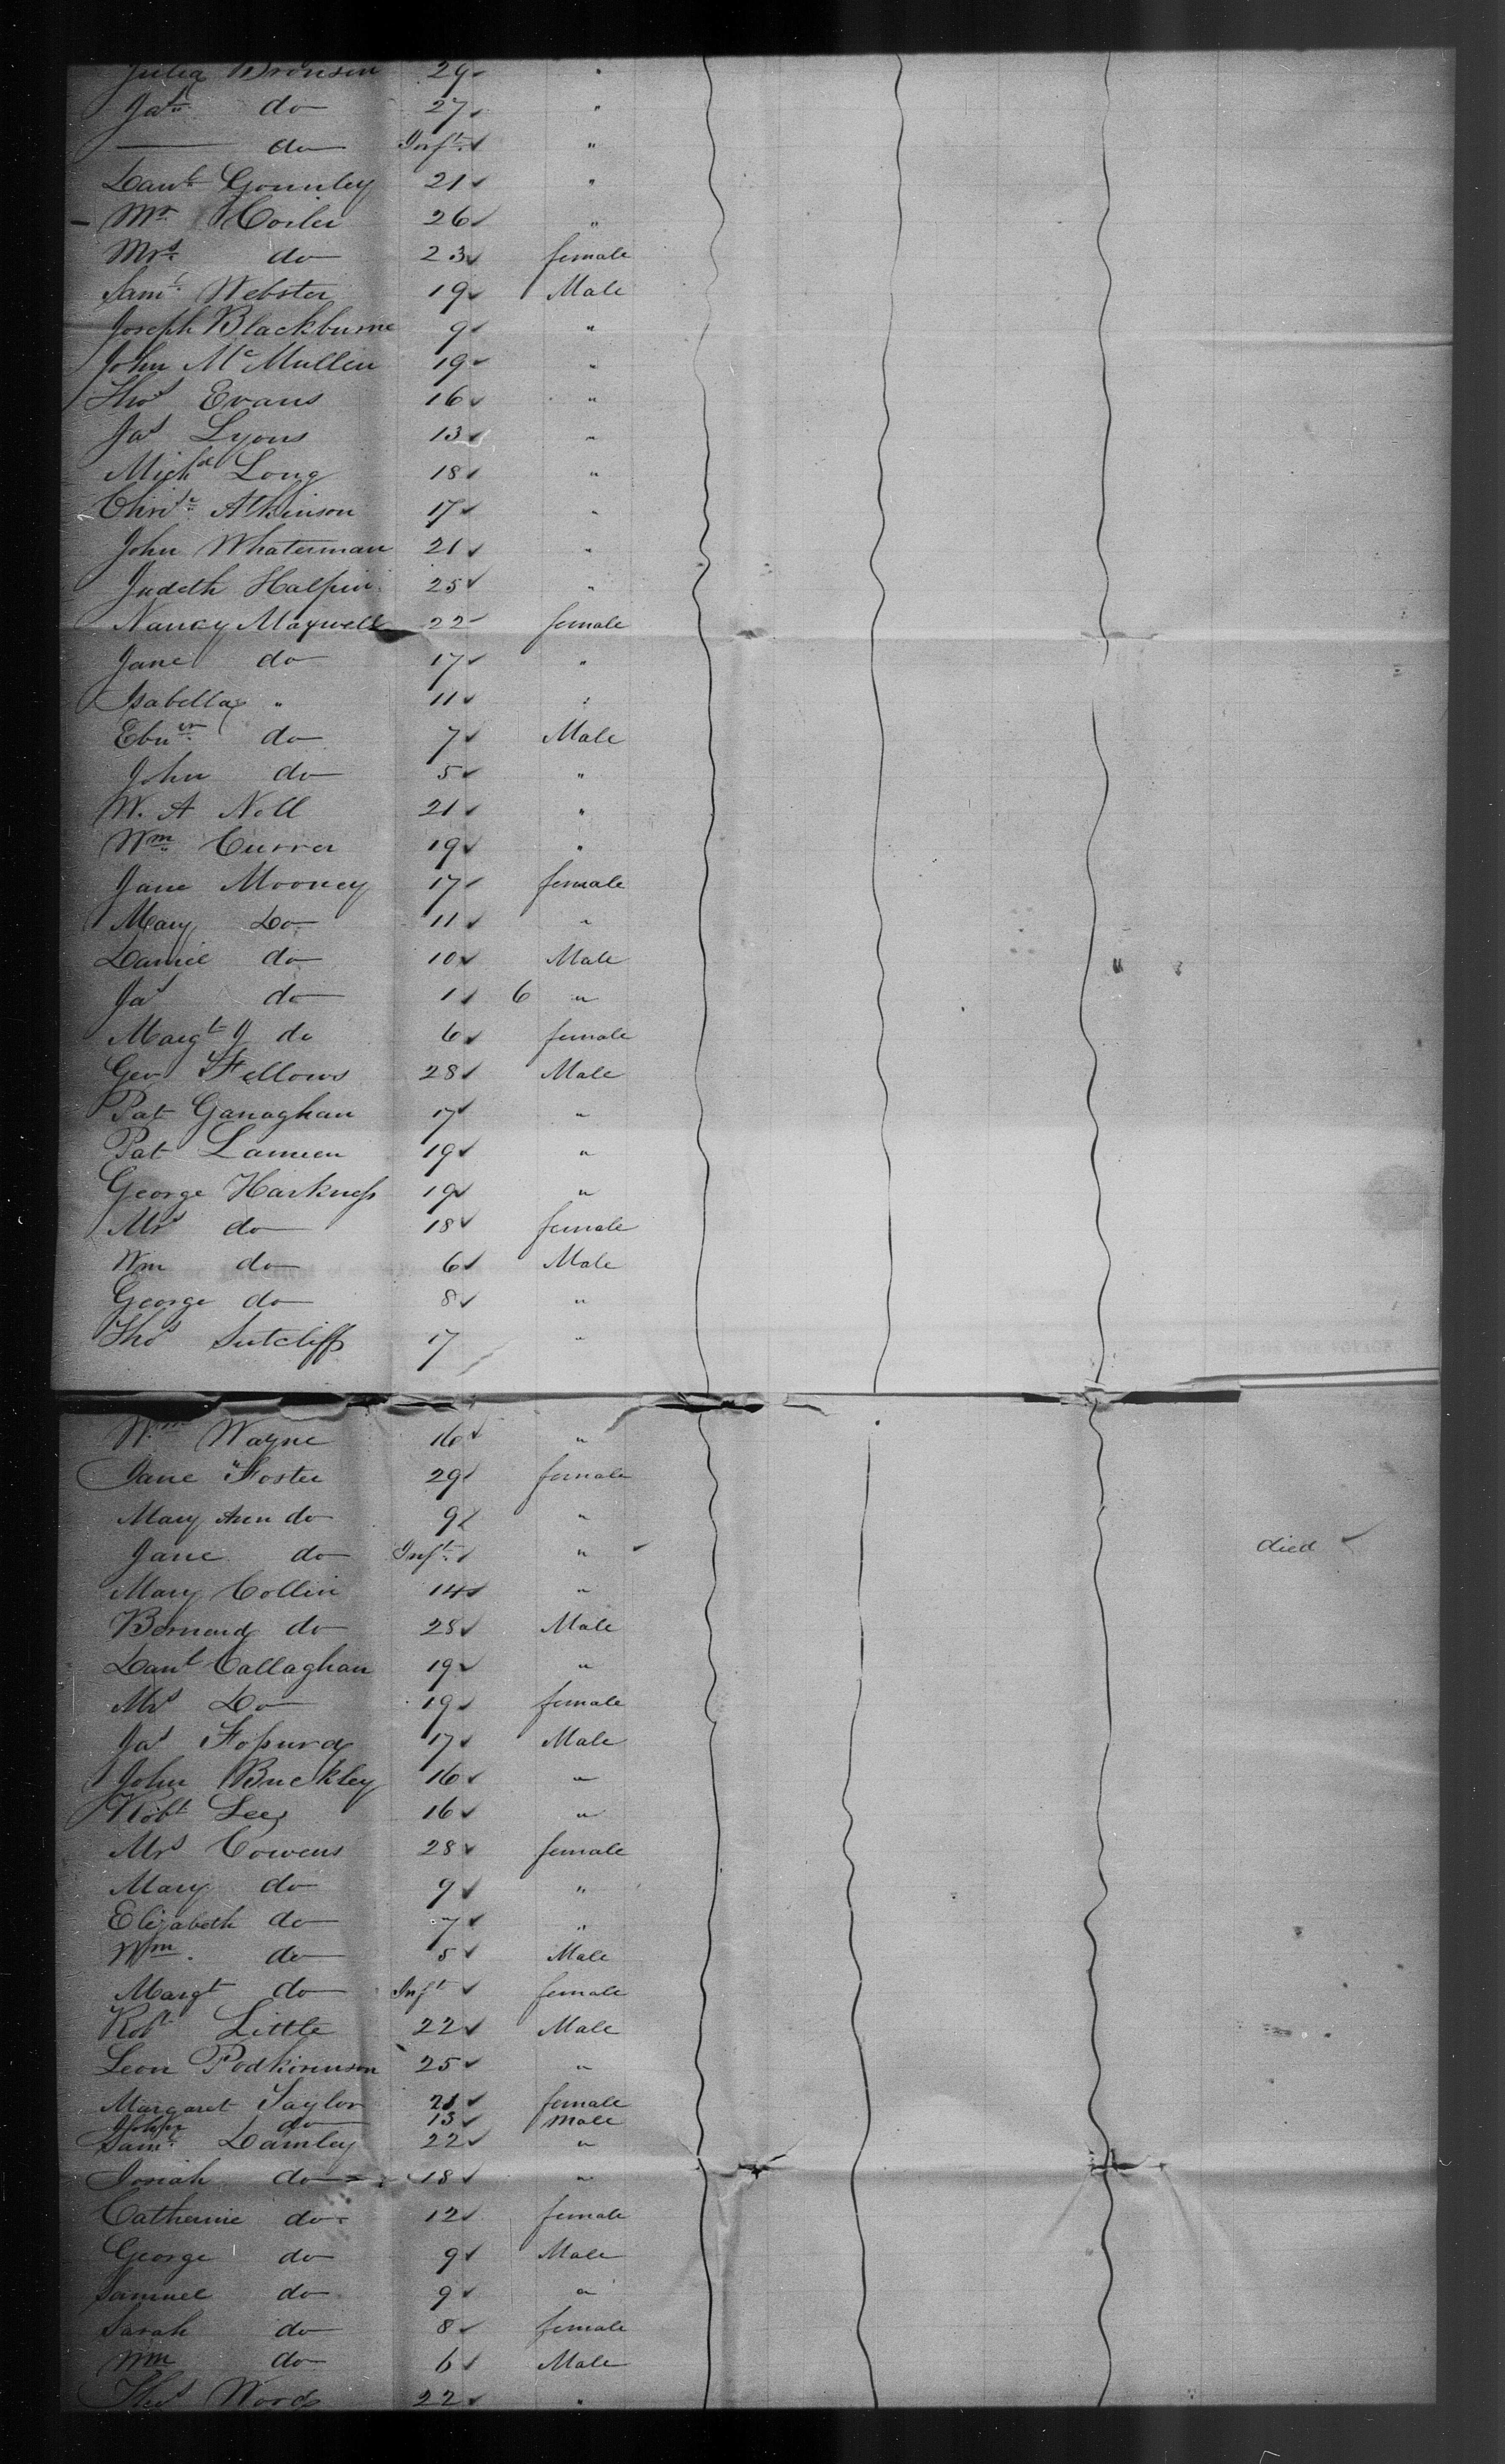 Julia Bronson 29 "
Jas do 27 "
—— do Inft "
Danl Gounley 21 "
Mr Coiler 26 "
Mrs do 23 female
Saml Webster 19 Male
Joseph Blackburne 9 "
John McMullen 19 "
Thos Evans 16 "
Jas Lyons 13 "
Michl Long 18 "
Christr Atkinson 17 "
John Whaterman 21 "
Judeth Halpin 25 "
Nancy Maxwell 22 female
Jane do 17 "
Isabella " 11 "
Ebnr do 7 Male
John do 5 "
W. A Noll 21 "
Wm Currer 19 "
Jane Mooney 17 female
Mary Do 11 "
Daniel do 10 Male
Jas do 1 6 "
Margt J do 6 female
Geo Fellows 28 Male
Pat Ganaghan 17 "
Pat Lamien 19 "
George Harkness 19 "
Mrs do 18 female
Wm do 6 Male
George do 8 "
Thos Sutcliff 17 "
Wm Wayne 16 "
Jane Foster 29 female
Mary Ann do 9 "
Jane do Inft " died
Mary Collin 14 "
Bernard do 28 Male
Danl Callaghan 19 "
Mrs Do 19 female
Jas 17 Male
John Buckley 16 "
Robt Lee 16 "
Mrs Cowens 28 female
Mary do 9 "
Elizabeth do 7 "
Wm. do 5 Male
Margt do Inft female
Robt Little 22 Male
Leon Podkirinson 25 "
Margaret Taylor 21 female
John do 13 Male
Saml Damley 22 "
Josiah do 18 "
Catherine do 12 female
George do 9 Male
Samuel do 9 "
Sarah do 8 female
Wm do 6 Male
Thos Woods 22 "